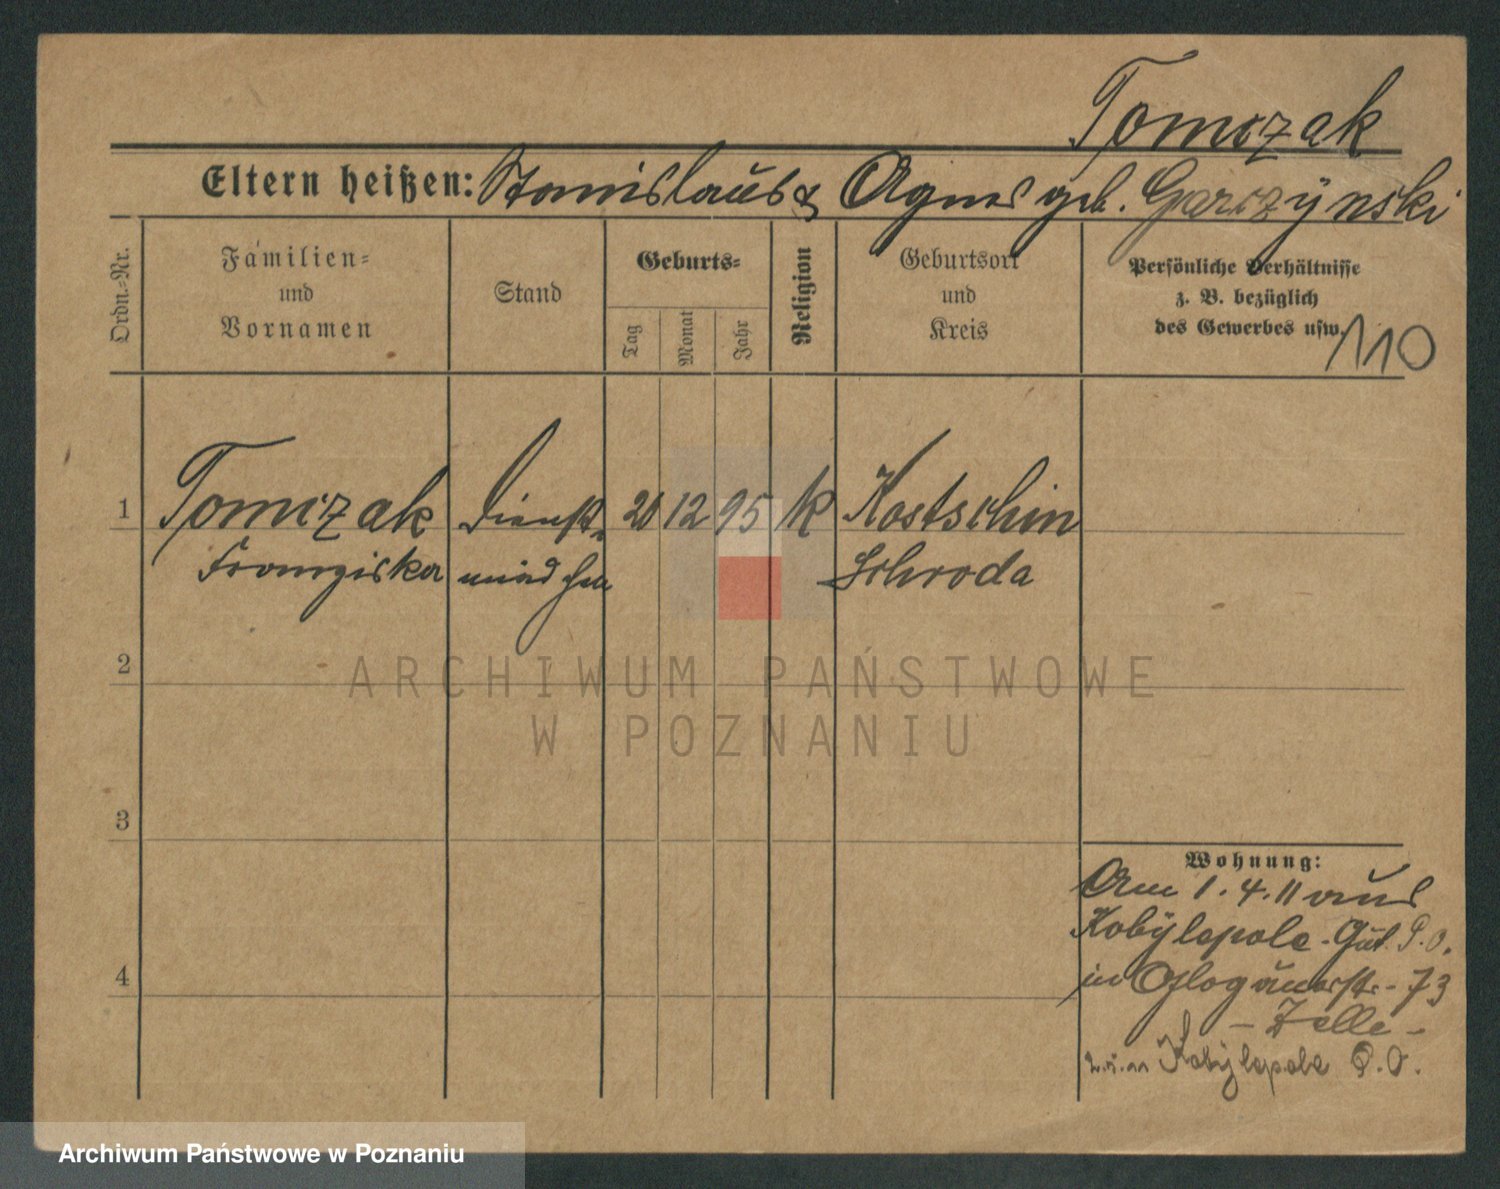 Tomczak
Eltern heißen: Stanislaus & Agnes geb. Garczynski
Ordn.-Nr.
Familien-
und
Vornamen
Stand
Geburts-
Tag
Monat
Jahr
Religion
Geburtsort
und
Kreis
Persönliche Verhältnisse
z. B. bezüglich
des Gewerbes usw.
110
1 Tomczak Dienst- 20 12 95 k Kostschin
Franziska mädchen Schroda
2
3
4
Wohnung:
Am 1.4.11 aus
Kobylepole-Gut P.O.
in Glogauerstr. 73
- Zelle -
Kobylepole P.O.
ARCHIWUM PAŃSTWOWE
W POZNANIU
Archiwum Państwowe w Poznaniu